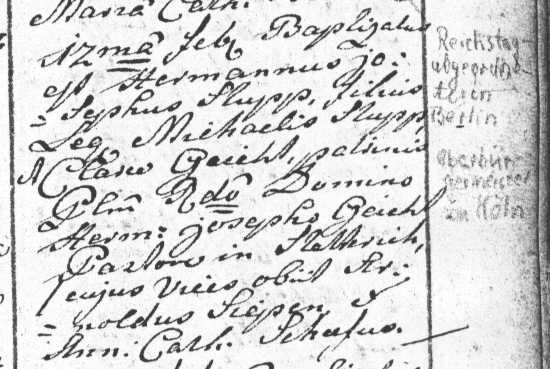 Maria Cath.
12mâ feb. Baptizatus
est Hermannus jo:
=sephus Stupp, filius
Leg. Michaelis Stupp,
& Claræ Geich, patrinis
Plm Rdô Domino
Herm: josepho Geich
Pastore in
cujus vices obiit Ar:
=noldus Siepen &
Ann: Cath: Schefus.
Reichstag-
abgeordne-
ter in
Berlin
Oberbür-
germeister
in Köln